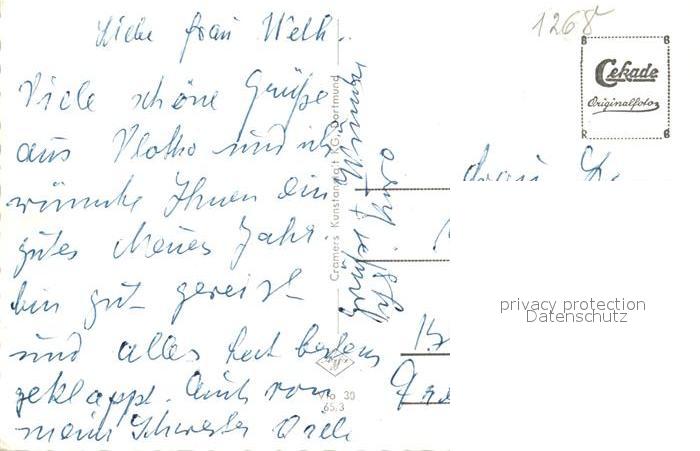 Liebe Frau Welk.
Viele schöne Grüße
aus Vlotho und ich
wünsche Ihnen ein
gutes Neues Jahr.
bin gut gereist
und alles hat bestens
geklappt. Auch von
meiner Schwester viele
Grüße
Ihre
1268
Cekade
Originalfoto
Cramers Kunstanstalt KG, Dortmund
Vlo 30
65.3
Frau
privacy protection
Datenschutz